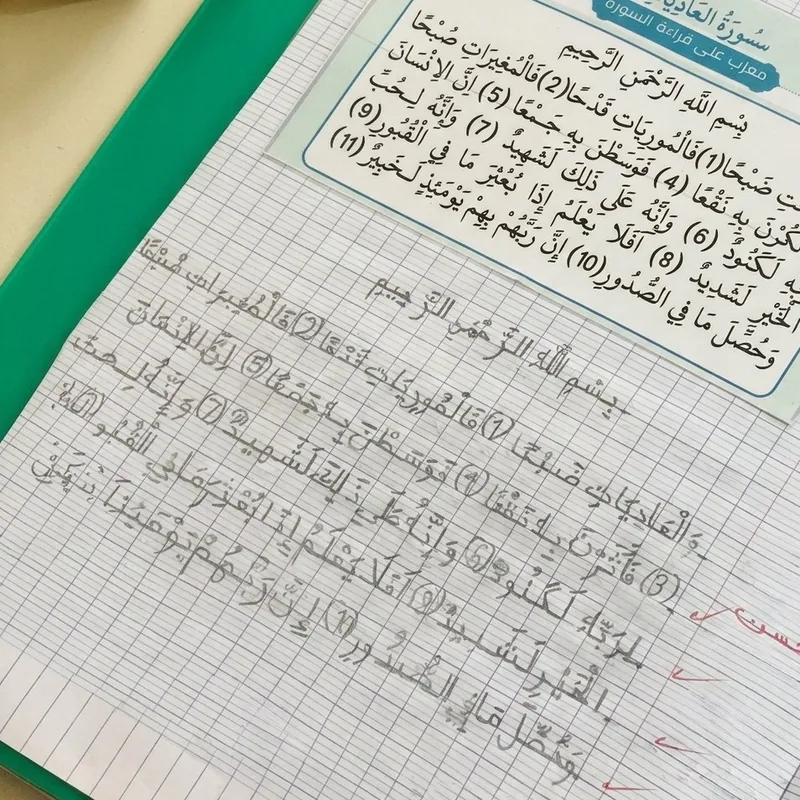 سُورَةُ العَادِيَا
معرّب على قراءة السورة
بِسْمِ اللَّهِ الرَّحْمَنِ الرَّحِيمِ
ت ضَبْحًا (1) فَالْمُورِيَاتِ قَدْحًا (2) فَالْمُغِيرَاتِ صُبْحًا
ثَرْنَ بِهِ نَقْعًا (4) فَوَسَطْنَ بِهِ جَمْعًا (5) إِنَّ الإِنْسَانَ
بِّهِ لَكَنُودٌ (6) وَإِنَّهُ عَلَى ذَلِكَ لَشَهِيدٌ (7) وَإِنَّهُ لِحُبِّ
الْخَيْرِ لَشَدِيدٌ (8) أَفَلَا يَعْلَمُ إِذَا بُعْثِرَ مَا فِي الْقُبُورِ (9)
وَحُصِّلَ مَا فِي الصُّدُورِ (10) إِنَّ رَبَّهُمْ بِهِمْ يَوْمَئِذٍ لَخَبِيرٌ (11)
بِسْمِ اللَّهِ الرَّحْمَنِ الرَّحِيمِ
وَالْعَادِيَاتِ ضَبْحًا (1) فَالْمُورِيَاتِ قَدْحًا (2) فَالْمُغِيرَاتِ صُبْحًا
(3) فَأَثَرْنَ بِهِ نَقْعًا (4) فَوَسَطْنَ بِهِ جَمْعًا (5) إِنَّ الإِنْسَانَ
لِرَبِّهِ لَكَنُودٌ (6) وَإِنَّهُ عَلَى ذَلِكَ لَشَهِيدٌ (7) وَإِنَّهُ لِحُبِّ
الْخَيْرِ لَشَدِيدٌ (8) أَفَلَا يَعْلَمُ إِذَا بُعْثِرَ مَا فِي الْقُبُو
وَحُصِّلَ مَا فِي الصُّدُورِ (10) إِنَّ رَبَّهُمْ